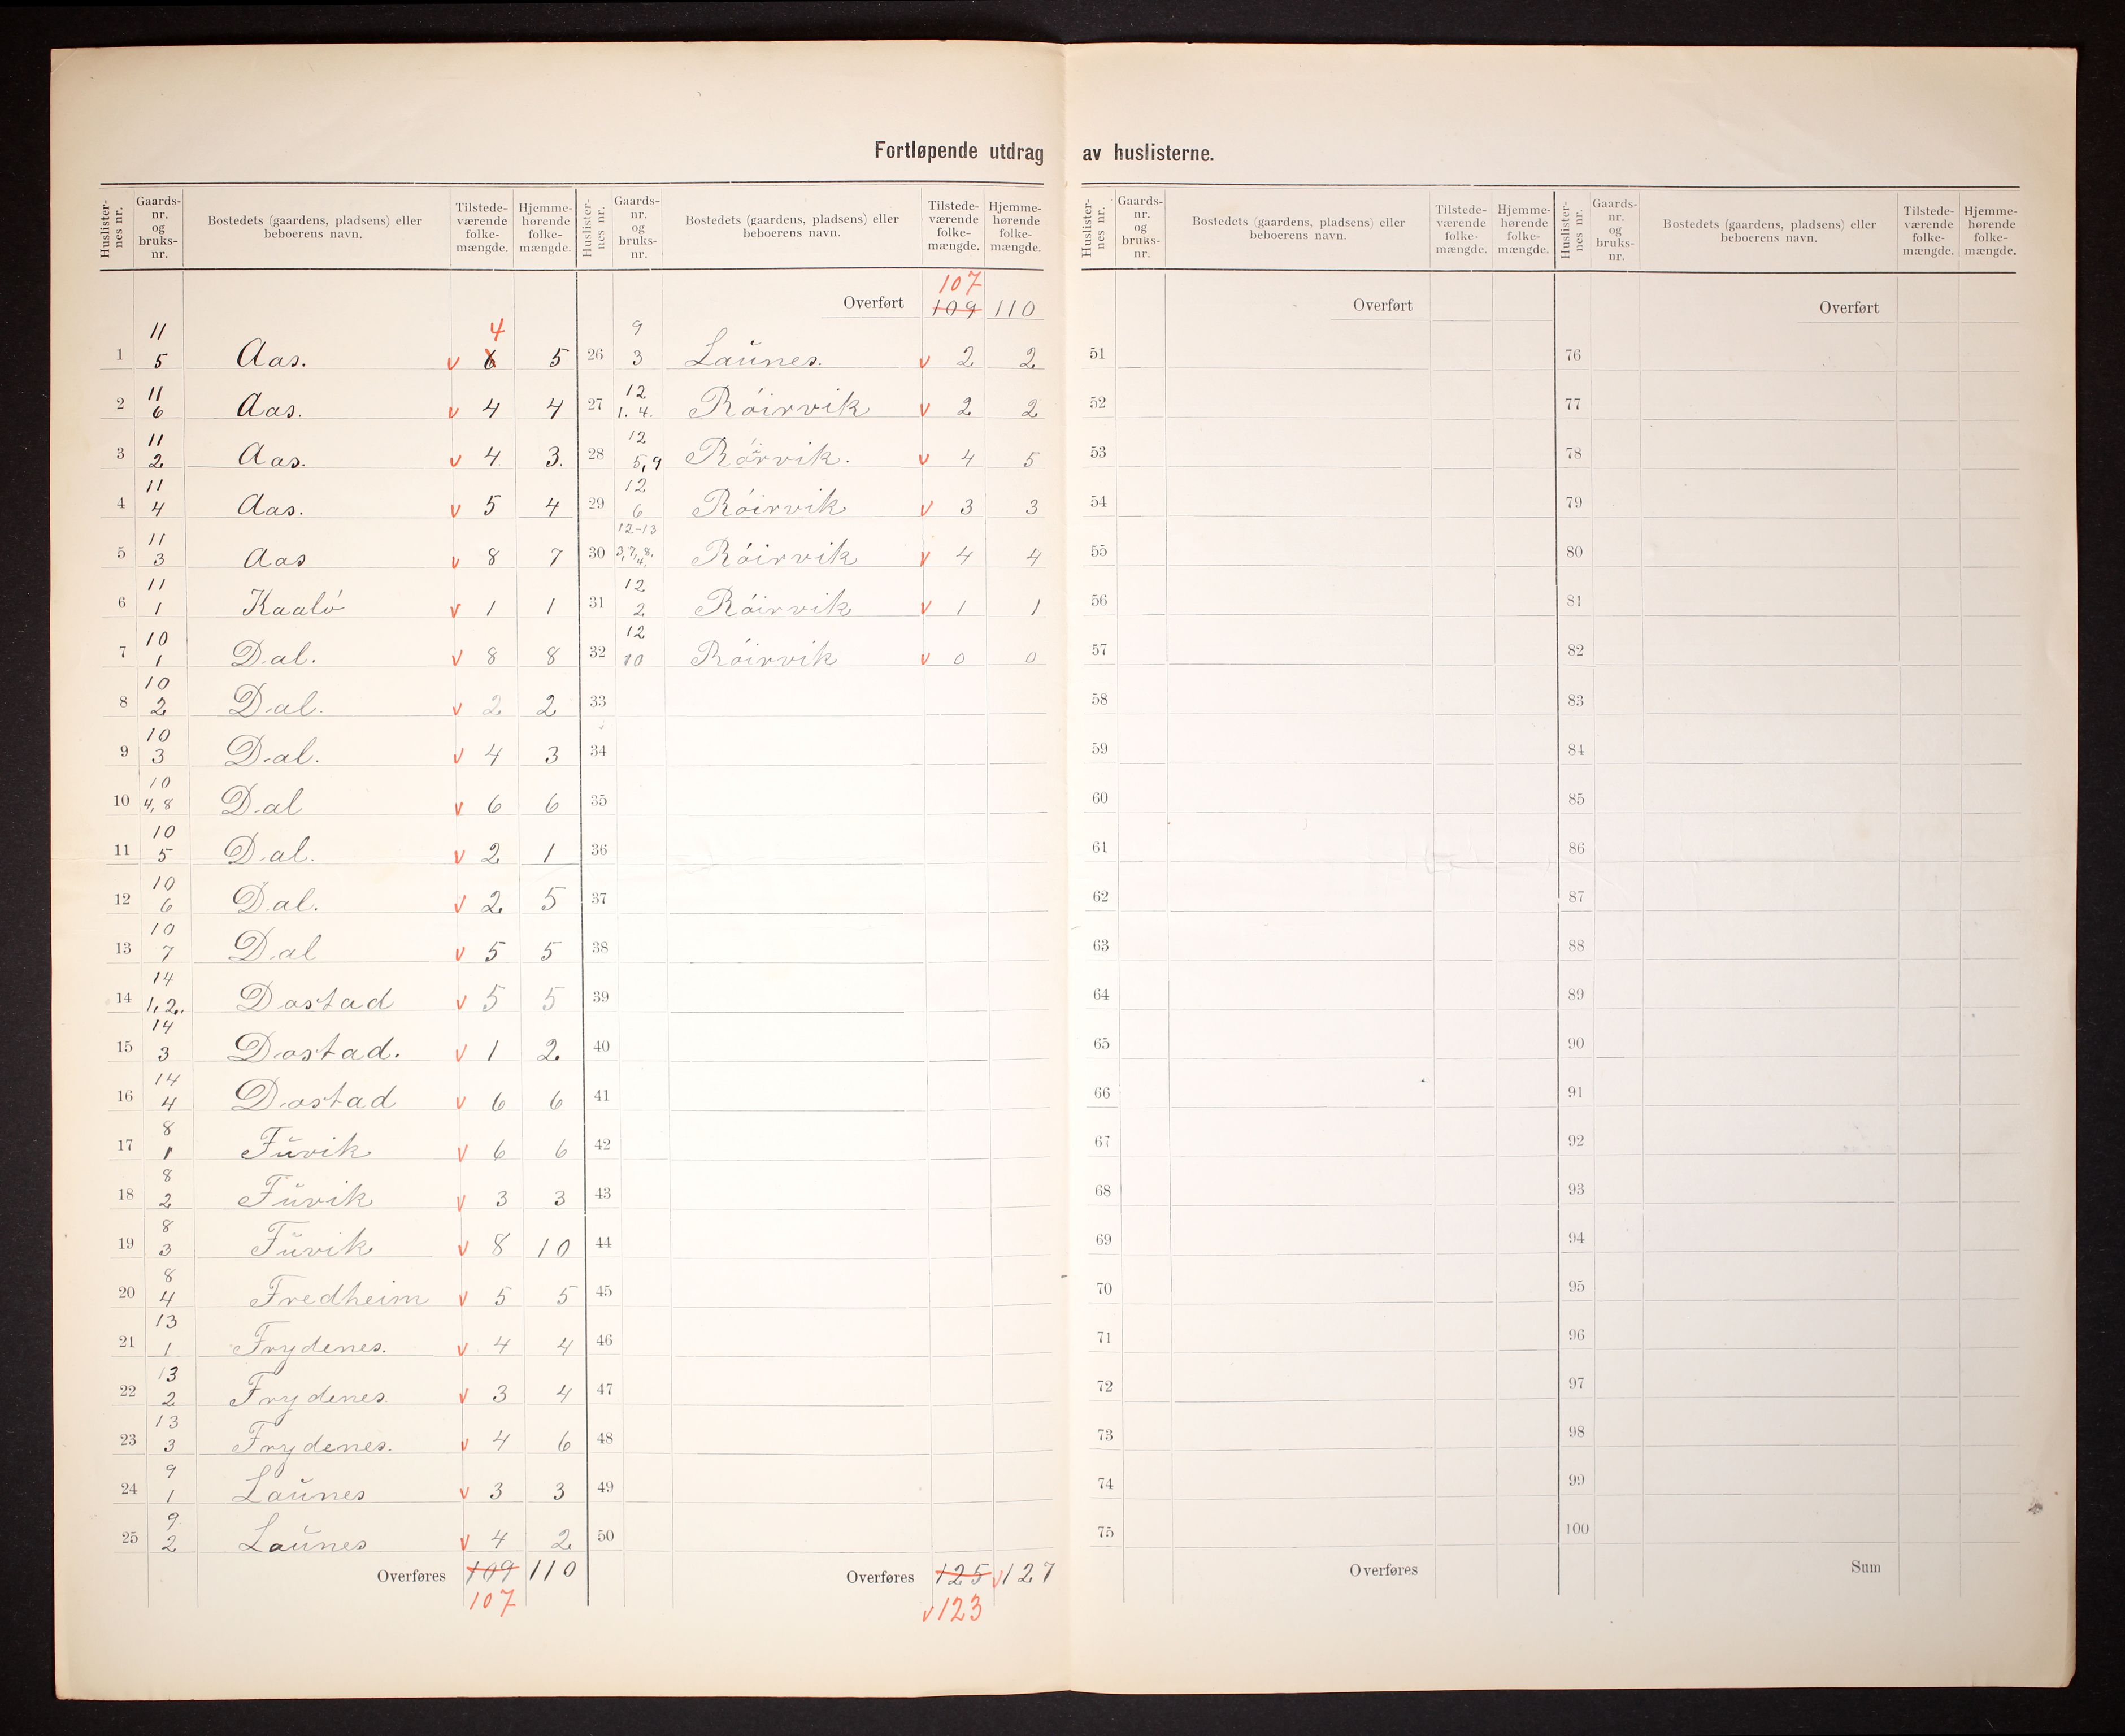 Fortløpende utdrag av huslisterne.
Huslisternes nr. Gaardsnr. og bruksnr. Bostedets (gaardens, pladsens) eller beboerens navn. Tilstedeværende folkemængde. Hjemmehørende folkemængde.
11
1 5 Aas. v 6 4 5
2 11 6 Aas. v 4 4
3 11 2 Aas. v 4. 3.
4 11 4 Aas. v 5 4
5 11 3 Aas v 8 7
6 11 1 Kaalö v 1 1
7 10 1 Dal. v 8 8
8 10 2 Dal. v 2 2
9 10 3 Dal. v 4 3
10 10 4, 8 Dal v 6 6
11 10 5 Dal. v 2 1
12 10 6 Dal. v 2 5
13 10 7 Dal v 5 5
14 14 1, 2. Dostad v 5 5
15 14 3 Dostad. v 1 2
16 14 4 Dostad v 6 6
17 8 1 Fŭvik v 6 6
18 8 2 Fŭvik v 3 3
19 8 3 Fŭvik v 8 10
20 8 4 Fredheim v 5 5
21 13 1 Frydenes. v 4 4
22 13 2 Frydenes. v 3 4
23 13 3 Frydenes. v 4 6
24 9 1 Laŭnes v 3 3
25 9 2 Laŭnes v 4 2
Overføres 109 110
107
Huslisternes nr. Gaardsnr. og bruksnr. Bostedets (gaardens, pladsens) eller beboerens navn. Tilstedeværende folkemængde. Hjemmehørende folkemængde.
107
Overført 109 110
26 9 3 Laŭnes. v 2 2
27 12 1. 4. Röirvik v 2 2
28 12 5, 9 Rörvik. v 4 5
29 12 6 Röirvik v 3 3
30 12-13 3, 7, 8, 4, Röirvik v 4 4
31 12 2 Röirvik v 1 1
32 12 10 Röirvik v 0 0
33
34
35
36
37
38
39
40
41
42
43
44
45
46
47
48
49
50
Overføres 125 v 127
v 123
Huslisternes nr. Gaardsnr. og bruksnr. Bostedets (gaardens, pladsens) eller beboerens navn. Tilstedeværende folkemængde. Hjemmehørende folkemængde.
Overført
51
52
53
54
55
56
57
58
59
60
61
62
63
64
65
66
67
68
69
70
71
72
73
74
75
Overføres
Huslisternes nr. Gaardsnr. og bruksnr. Bostedets (gaardens, pladsens) eller beboerens navn. Tilstedeværende folkemængde. Hjemmehørende folkemængde.
Overført
76
77
78
79
80
81
82
83
84
85
86
87
88
89
90
91
92
93
94
95
96
97
98
99
100
Sum